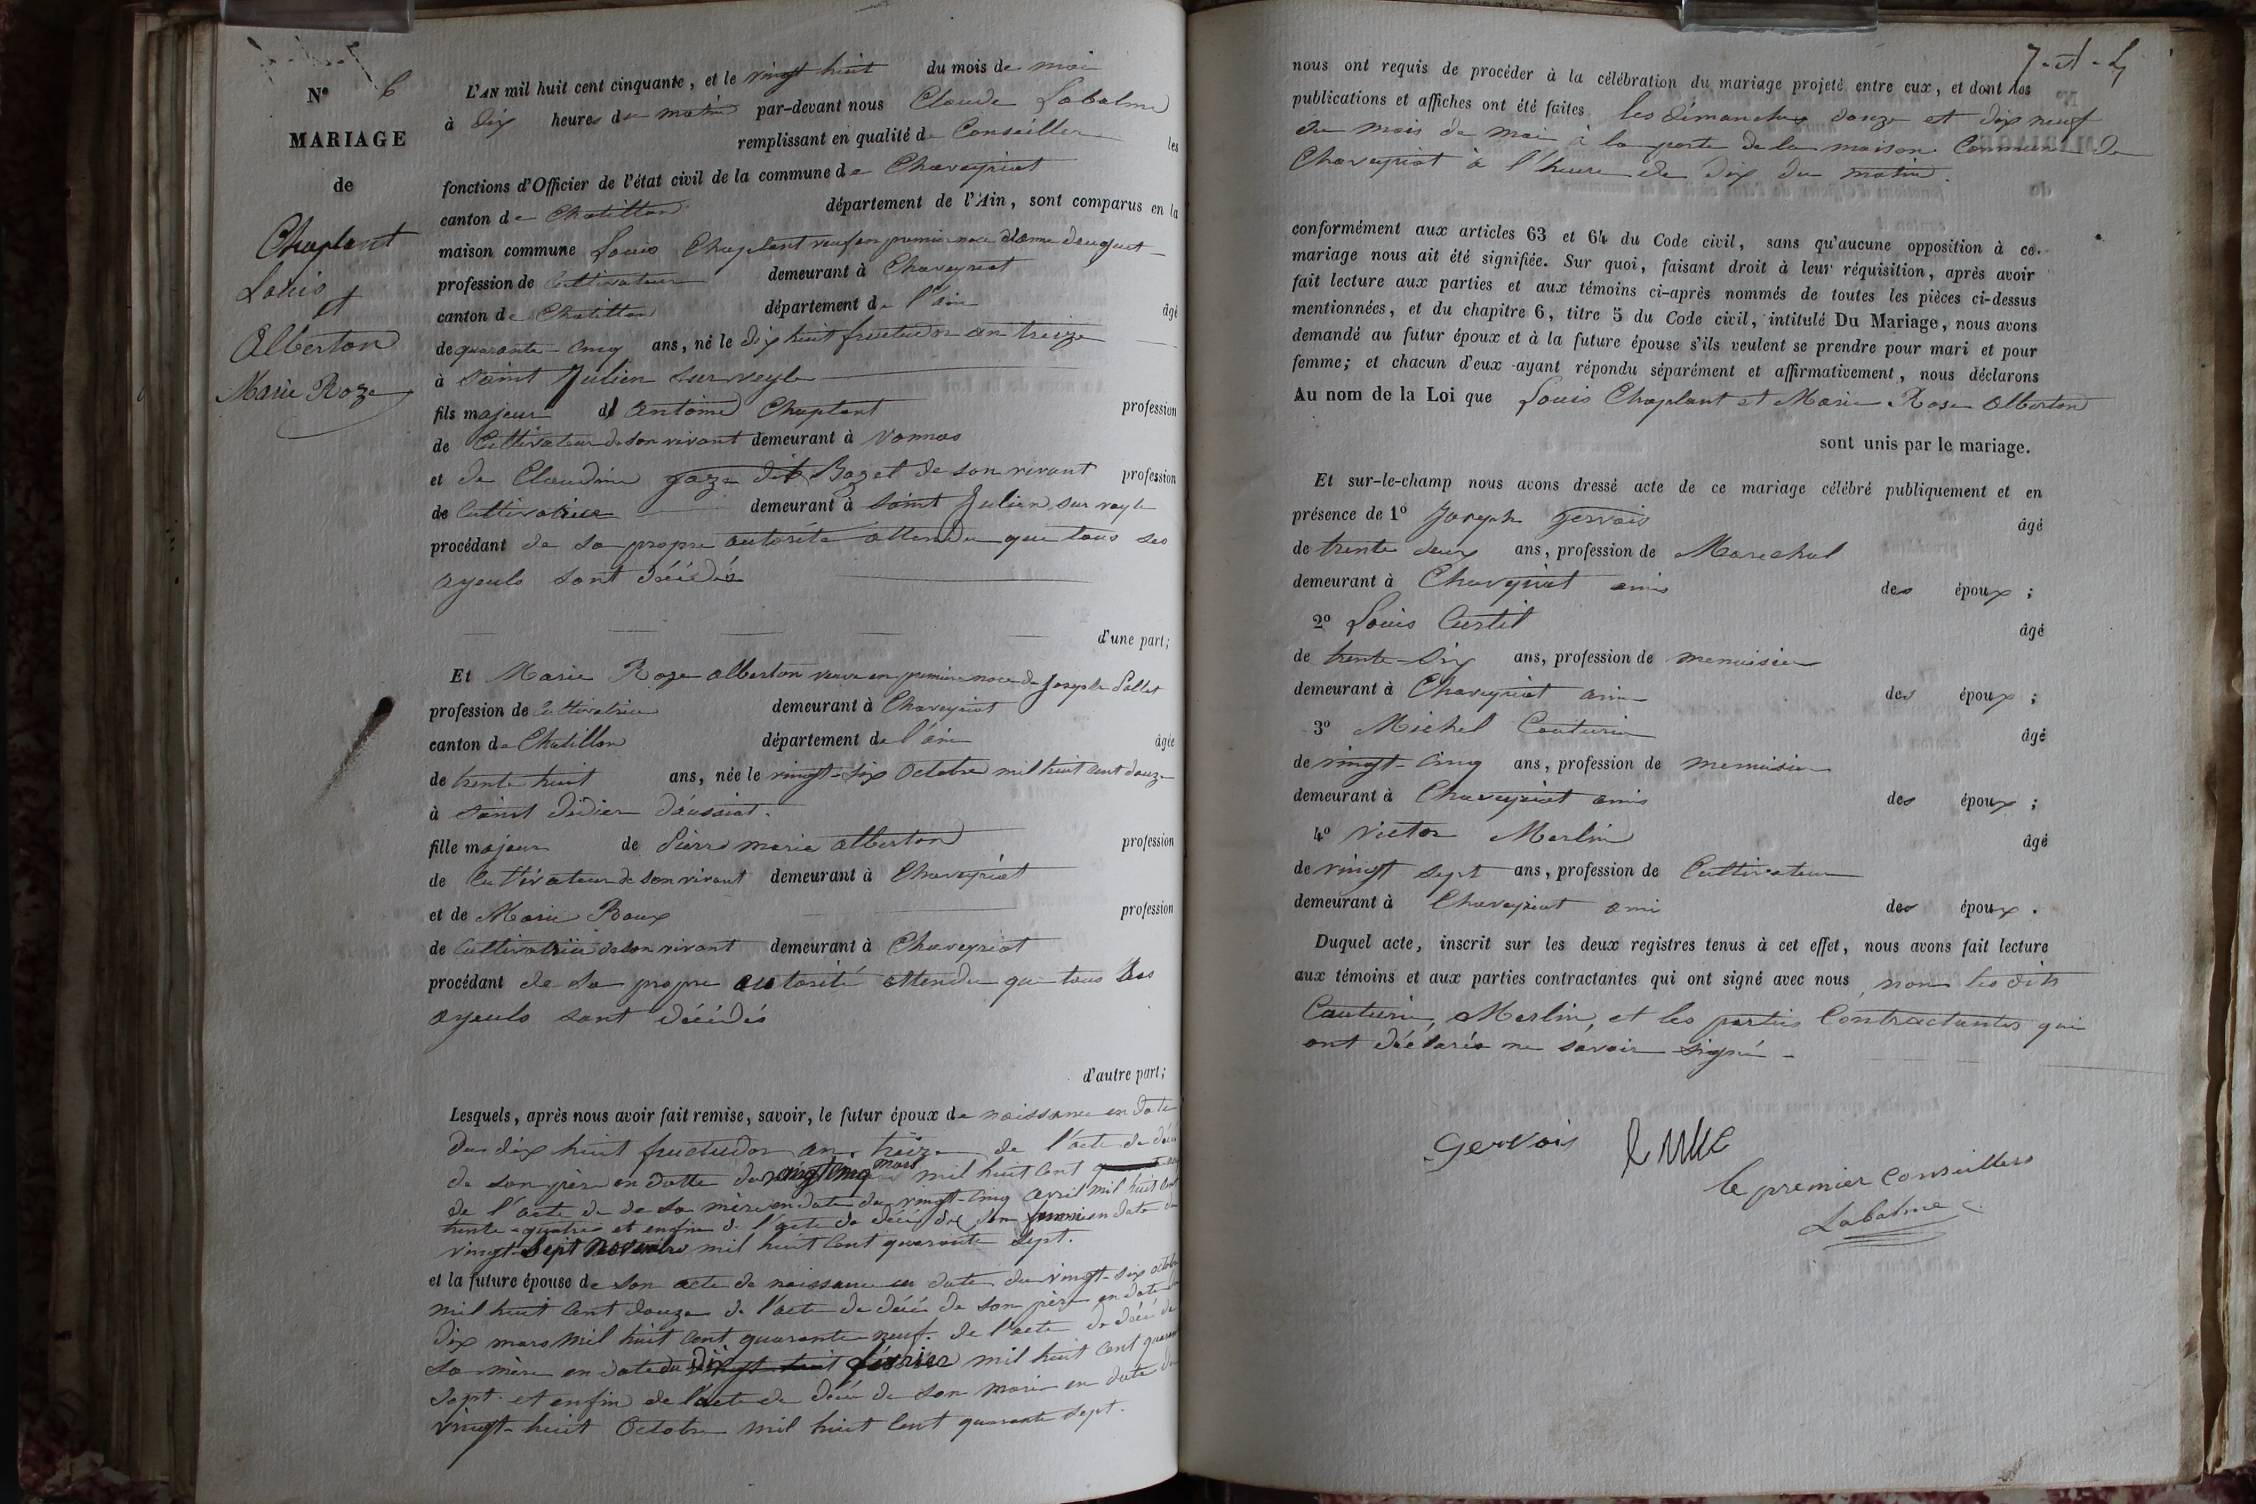 N° 6
MARIAGE
de
Chaplant
Louis
et
Alberton
Marie Roze
L'AN mil huit cent cinquante, et le vingt huit du mois de mai
à dix heures du matin par-devant nous Claude Labalme
remplissant en qualité de Conseiller les
fonctions d'Officier de l'état civil de la commune de Chaveyriat
canton de Chatillon département de l'Ain, sont comparus en la
maison commune Louis Chaplant veuf en premier noce
profession de Cultivateur demeurant à Chaveyriat
canton de Chatillon département de l'ain âgé
de quarante-cinq ans, né le dix huit fructidor an treize
à Saint Julien sur veyle
fils majeur d antoine Chaplant profession
de Cultivateur de son vivant demeurant à Vonnas
et de Claudine dit Bozet de son vivant profession
de Cultivatrice demeurant à Saint Julien sur veyle
procédant de sa propre autorité attendu que tous ses
ayeuls sont décédés
d'une part;
Et Marie Roze alberton veuve en premiere noce de Joseph Pollet
profession de cultivatrice demeurant à Chaveyriat
canton de Chatillon département de l'ain âgée
de trente huit ans, née le vingt-six Octobre mil huit cent douze
à Saint Didier d'aussiat.
fille majeur de Pierre marie alberton profession
de Cultivateur de son vivant demeurant à Chaveyriat
et de Marie Roux profession
de Cultivatrice de son vivant demeurant à Chaveyriat
procédant de sa propre autorité attendu que tous ses
ayeuls sont décédés
d'autre part;
Lesquels, après nous avoir fait remise, savoir, le futur époux de naissance en date
du dix huit fructidor an treize de l'acte de décé
de son père en datte du vingt cinq mars mil huit cent
de l'acte de de sa mère en date du vingt-cinq avril mil huit cent
trente-quatre et enfin de l'acte de décé de son en date du
vingt-sept Novembre mil huit cent quarante sept.
et la future épouse de son acte de naissance en date du vingt-six octobre
mil huit cent douze de l'acte de décé de son père en date du
dix mars mil huit cent quarante neuf. de l'acte de décé de
sa mère en date du dix février mil huit cent quarante
sept. et enfin de l'acte de décé de son mari en date du
vingt-huit Octobre mil huit cent quarante sept.
nous ont requis de procéder à la célébration du mariage projeté entre eux, et dont les
publications et affiches ont été faites les dimanches douze et dix neuf
du mois de mai à la porte de la maison Commune de
Chaveyriat à l'heure de dix du matin.
conformément aux articles 63 et 64 du Code civil, sans qu'aucune opposition à ce
mariage nous ait été signifiée. Sur quoi, faisant droit à leur réquisition, après avoir
fait lecture aux parties et aux témoins ci-après nommés de toutes les pièces ci-dessus
mentionnées, et du chapitre 6, titre 5 du Code civil, intitulé Du Mariage, nous avons
demandé au futur époux et à la future épouse s'ils veulent se prendre pour mari et pour
femme; et chacun d'eux ayant répondu séparément et affirmativement, nous déclarons
Au nom de la Loi que Louis Chaplant et Marie Rose Alberton
sont unis par le mariage.
Et sur-le-champ nous avons dressé acte de ce mariage célébré publiquement et en
présence de 1° Joseph Gervais âgé
de trente deux ans, profession de Marechal
demeurant à Chaveyriat amis des époux ;
2° Louis Curtil âgé
de trente-six ans, profession de menuisier
demeurant à Chaveyriat ami des époux ;
3° Michel Couturier âgé
de vingt-cinq ans, profession de menuisier
demeurant à Chaveyriat amis des époux ;
4° Victor Merlin âgé
de vingt sept ans, profession de Cultivateur
demeurant à Chaveyriat ami des époux .
Duquel acte, inscrit sur les deux registres tenus à cet effet, nous avons fait lecture
aux témoins et aux parties contractantes qui ont signé avec nous, non les dits
Couturier, Merlin, et les parties Contractantes qui
ont déclarés ne savoir signé -
Gervais
le premier conseillers
Labalme